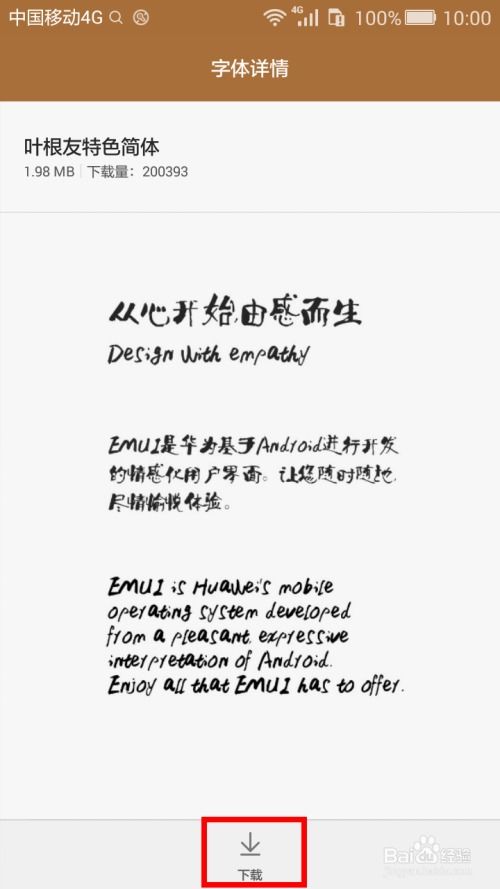 中国移动4G 4G 100% 10:00
字体详情
叶根友特色简体
1.98 MB 下载量：200393
从心开始,由感而生
Design with empathy
EMUI是华为基于Android进行开发
的情感化用户界面。让您随时随地,
尽情愉悦体验。
EMUI is Huawei's mobile
operating system developed
from a pleasant, expressive
interpretation of Android.
Enjoy all that EMUI has to offer.
下载
Baidu经验
jingyan.baidu.com